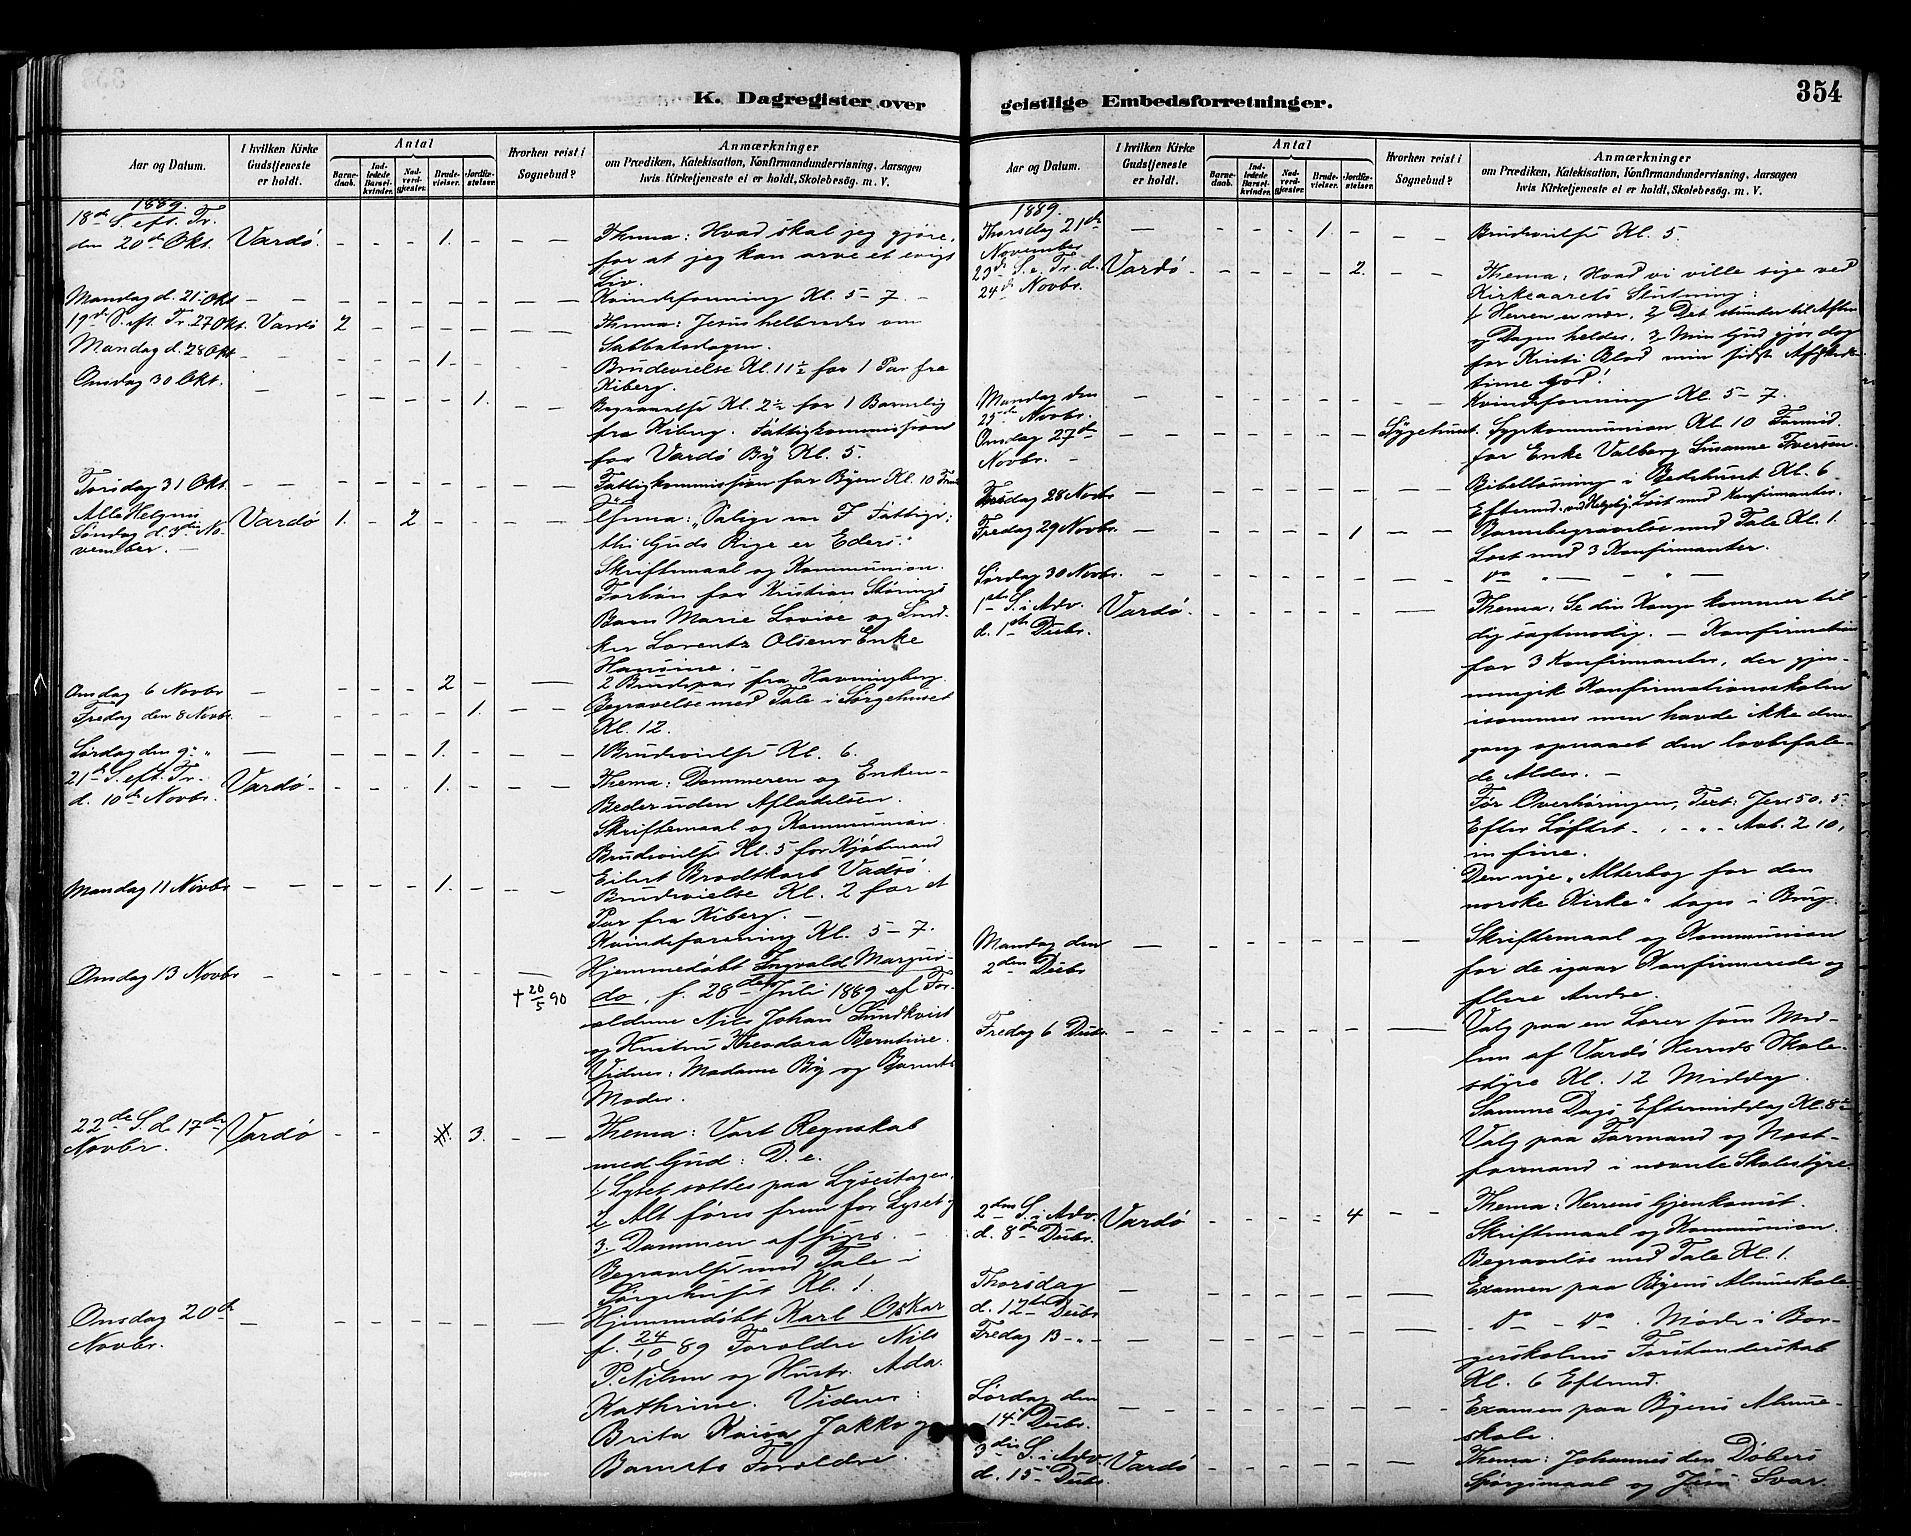 K. Dagregister over
Aar og Datum.
I hvilken Kirke Gudstjeneste er holdt.
Antal
Barnedaab.
Indledede Barselkvinder.
Nadverdgjester.
Brudevielser.
Jordfæstelser.
Hvorhen reist i Sognebud?
Anmærkninger
om Prædiken, Katekisation, Konfirmandundervisning, Aarsagen
hvis Kirketjeneste ei er holdt, Skolebesøg. m. V.
1889.
18de S. eft. Tr.
den 20de Okt. Vardø. - - - 1. - - - Thema: Hvad skal jeg gjøre,
for at jeg kan arve et evigt
Liv.
Mandag d. 21 Okt. - - - - - - - Kvindeforening Kl. 5-7. -
19de S. eft. Tr. 27 Okt. Vardø 2 - - - - - - Thema: Jesus helbreder om
Sabbatsdagen.
Mandag d. 28 Okt. - - - - 1. - - - Brudevielse Kl. 11½ for 1 Par fra
Kiberg.
Onsdag 30 Okt. - - - - - 1. - - Begravelse Kl. 2½ for 1 Barnelig
fra Kiberg. Fattigkommission
for Vardø By Kl. 5.
Torsdag 31 Okt. - - - - - - - Fattigkommission for Byen Kl. 10 Fmd
Alle Helgens
Søndag d. 3die No-
vember. - Vardø 1. - 2 - - - - Thema: "Salige ere I Fattige;
thi Guds Rige er Eders."
Skriftemaal og Kommunion.
Forbøn for Kristian Størings
Barn Marie Lovise og Sned-
ker Lorentz Olsens Enke
Hansine. -
Onsdag 6 Novbr - - - - 2 - - 2 Brudepar fra Havningberg.
Fredag den 8 Novbr. - - - - - 1. - - Begravelse med Tale i Sørgehuset
Kl. 12.
Lørdag den 9de " - - - - 1. - - - 1 Brudevielse Kl. 6.
21de S. eft. Tr.
d. 10de Novbr. Vardø - - - - 1. - - - Thema: Dommeren og Enken -
Beder uden Afladelsen.
Skriftemaal og Kommunion.
Brudevielse Kl. 5 for Kjøbmand
Eilert Brodtkorb Vadsø.
Mandag 11 Novbr - - - - - 1. - - - Brudevielse Kl. 2 for et
Par fra Kiberg. -
Kvindeforening Kl. 5-7.
Onsdag 13 Novbr - - - - - - - Hjemmedøbt Ingvald Margui-
† 20/5 90
do, f. 28de Juli 1889 af For-
ældrene Nils Johan Sundkvist
og Hustru Theodora Berntine.
Vidner: Madame By og Barnets
Moder.
22de S. d. 17de
Novbr. Vardø - - 3. - - Thema: Vort Regnskab
med Gud: D. e.
1. Lyset sættes paa Lysestagen,
2. Alt føres frem for Lyset og
3. Dommen afsiges. -
Begravelse med Tale i
Sørgehuset Kl. 1.
Onsdag 20de
Novbr. - - - - - - - Hjemmedøbt Karl Oskar
f. 24/10 89 Forældre Nils
P. Nilsen og Hustr. Ada
Kathrine. Vidner:
Brita Kaisa Jakko og
Barnets Forældre.
geistlige Embedsforretninger.
354
Aar og Datum.
I hvilken Kirke Gudstjeneste er holdt.
Antal
Barnedaab.
Indledede Barselkvinder.
Nadverdgjester.
Brudevielser.
Jordfæstelser.
Hvorhen reist i Sognebud?
Anmærkninger
om Prædiken, Katekisation, Konfirmandundervisning, Aarsagen
hvis Kirketjeneste ei er holdt, Skolebesøg. m. V.
1889.
Thorsdag 21de
November - - - - 1. - - - Brudevielse Kl. 5.
23de S. e. Tr. d.
24de Novbr. Vardø - - - - 2. - - Thema: Hvad vi ville sige ved
Kirkeaarets Slutning:
1. Herren er nær, 2. Det stunder til Aften
og Dagen helder, 3. Min Gud gjør dog
for Kristi Blod min sidste Afskeds-
time god!
Mandag den
25de Novbr. - - - - - - - - Kvindeforening Kl. 5-7.
Onsdag 27de
Novbr. - - - - - - - Sygehuset. Sygekommunion Kl. 10 Formid.
for Enke Valberg Susanne Iversen.
Bibellæsning i Bedehuset Kl. 6
Torsdag 28 Novbr - - - - - - - - Eftermd. Læst med Konfirmanter.
Fredag 29 Novbr. - - - - - 1 - - Barnebegravelse med Tale Kl. 1.
Læst med 3 Konfirmanter.
Lørdag 30 Novbr. - - - - - - - - do " — - " —
1ste S. i Adv.
d. 1ste Decbr. Vardø - - - - - - Thema: Se din Konge kommer til
dig sagtmodig. - Konfirmation
for 3 Konfirmanter, der gjen-
nemgik Konfirmationsskolen
isommer men havde ikke den-
gang opnaaet den lovbefale-
de Alder. -
Før Overhøringen, Text: Jer. 50. 5.
Efter Løftet - " - " Aab. 2 10,
in fine.
Den nye "Alterbog for den
norske Kirke" tages i Brug.
Mandag den
2den Decbr - - - - - - - Skriftemaal og Kommunion
for de igaar Konfirmerede og
flere Andre.
Fredag 6 Decbr. - - - - - - - Valg paa en Lærer som Med-
lem af Vardø Herreds Skole-
styre Kl. 12 Middag.
Samme Dags Eftermiddag Kl. 8
Valg paa Formand og Næst-
formand i nævnte Skolestyre.
2den S. i Adv.
d. 8de Decbr. Vardø - - - - 4 - - Thema: Herrens Gjenkomst.
Skriftemaal og Kommunion.
Begravelse med Tale Kl. 1.
Thorsdag
d. 12te Decbr - - - - - - - Examen paa Byens Almueskole
Fredag 13 - " - - - - - - - - - do - do. Møde i Bor-
gerskolens Forstanderskab
Kl. 6 Eftmd.
Lørdag den
14de Decbr. - - - - - - - - Examen paa Byens Almue-
skole.
3die S. i Adv.
d. 15 Decbr. Vardø - - - - - - - Thema: Johannes den Døbers
Spørgsmaal og Jesu Svar.